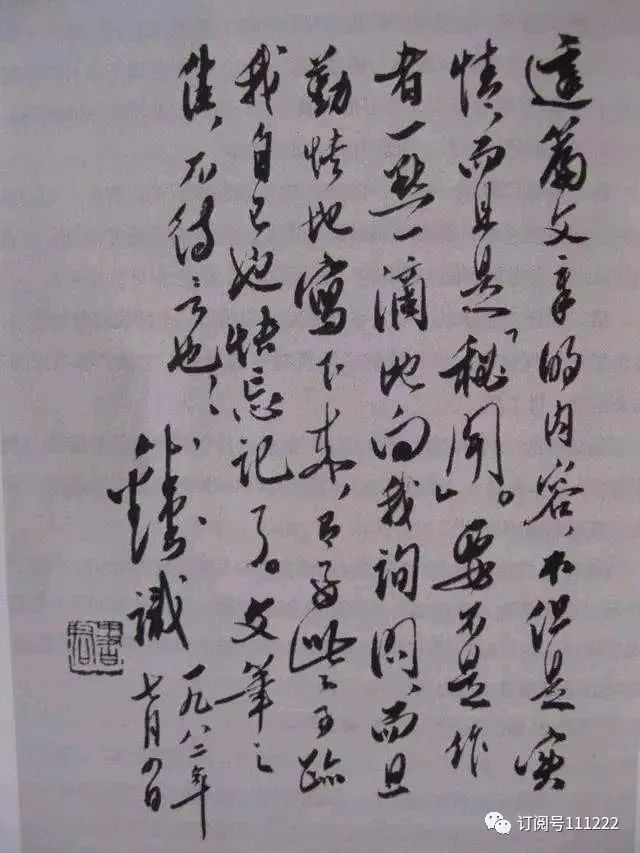 這篇文章的内容,不但是实
情,而且是「秘闻」。要不是作
者一點一滴地向我詢問,而且
勤快地寫下来,有好些事跡
我自己也快忘記了。文筆之
佳,不待言也!
錢鍾書識
一九八二年
七月四日
订阅号111222